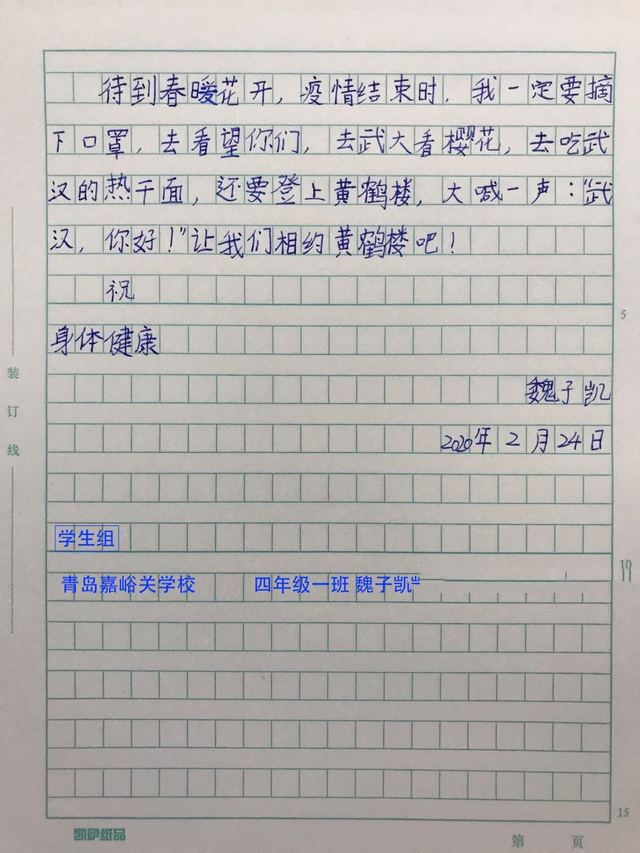 待到春暖花开，疫情结束时，我一定要摘
下口罩，去看望你们，去武大看樱花，去吃武
汉的热干面，还要登上黄鹤楼，大喊一声：“武
汉，你好！”让我们相约黄鹤楼吧！
祝
身体健康
魏子凯
2020年2月24日
学生组
青岛嘉峪关学校 四年级一班 魏子凯
装订线
5
10
15
凯萨纸品
第 页